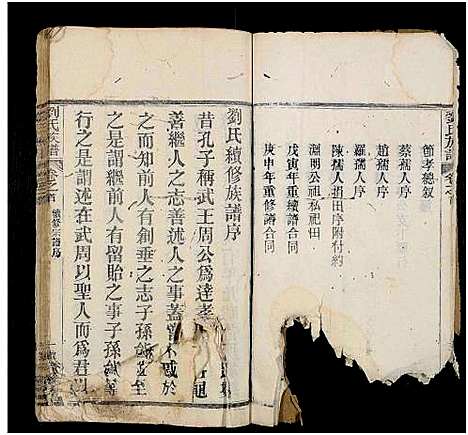 劉氏族譜
節孝總叙
蔡孺人序
趙孺人序
羅孺人序
陳孺人道田序附付約
淵明公祖私祀田
戊寅年重續譜合同
庚申年重修譜合同
劉氏續修族譜序
昔孔子稱武王周公爲達孝
善繼人之志善述人之事蓋嘗不或於
之而知前人有創垂之志子孫
之是謂繼前人有留貽之事子孫
行之是謂述在武周以聖人而爲君以
劉氏族譜
卷之首
續修宗譜序